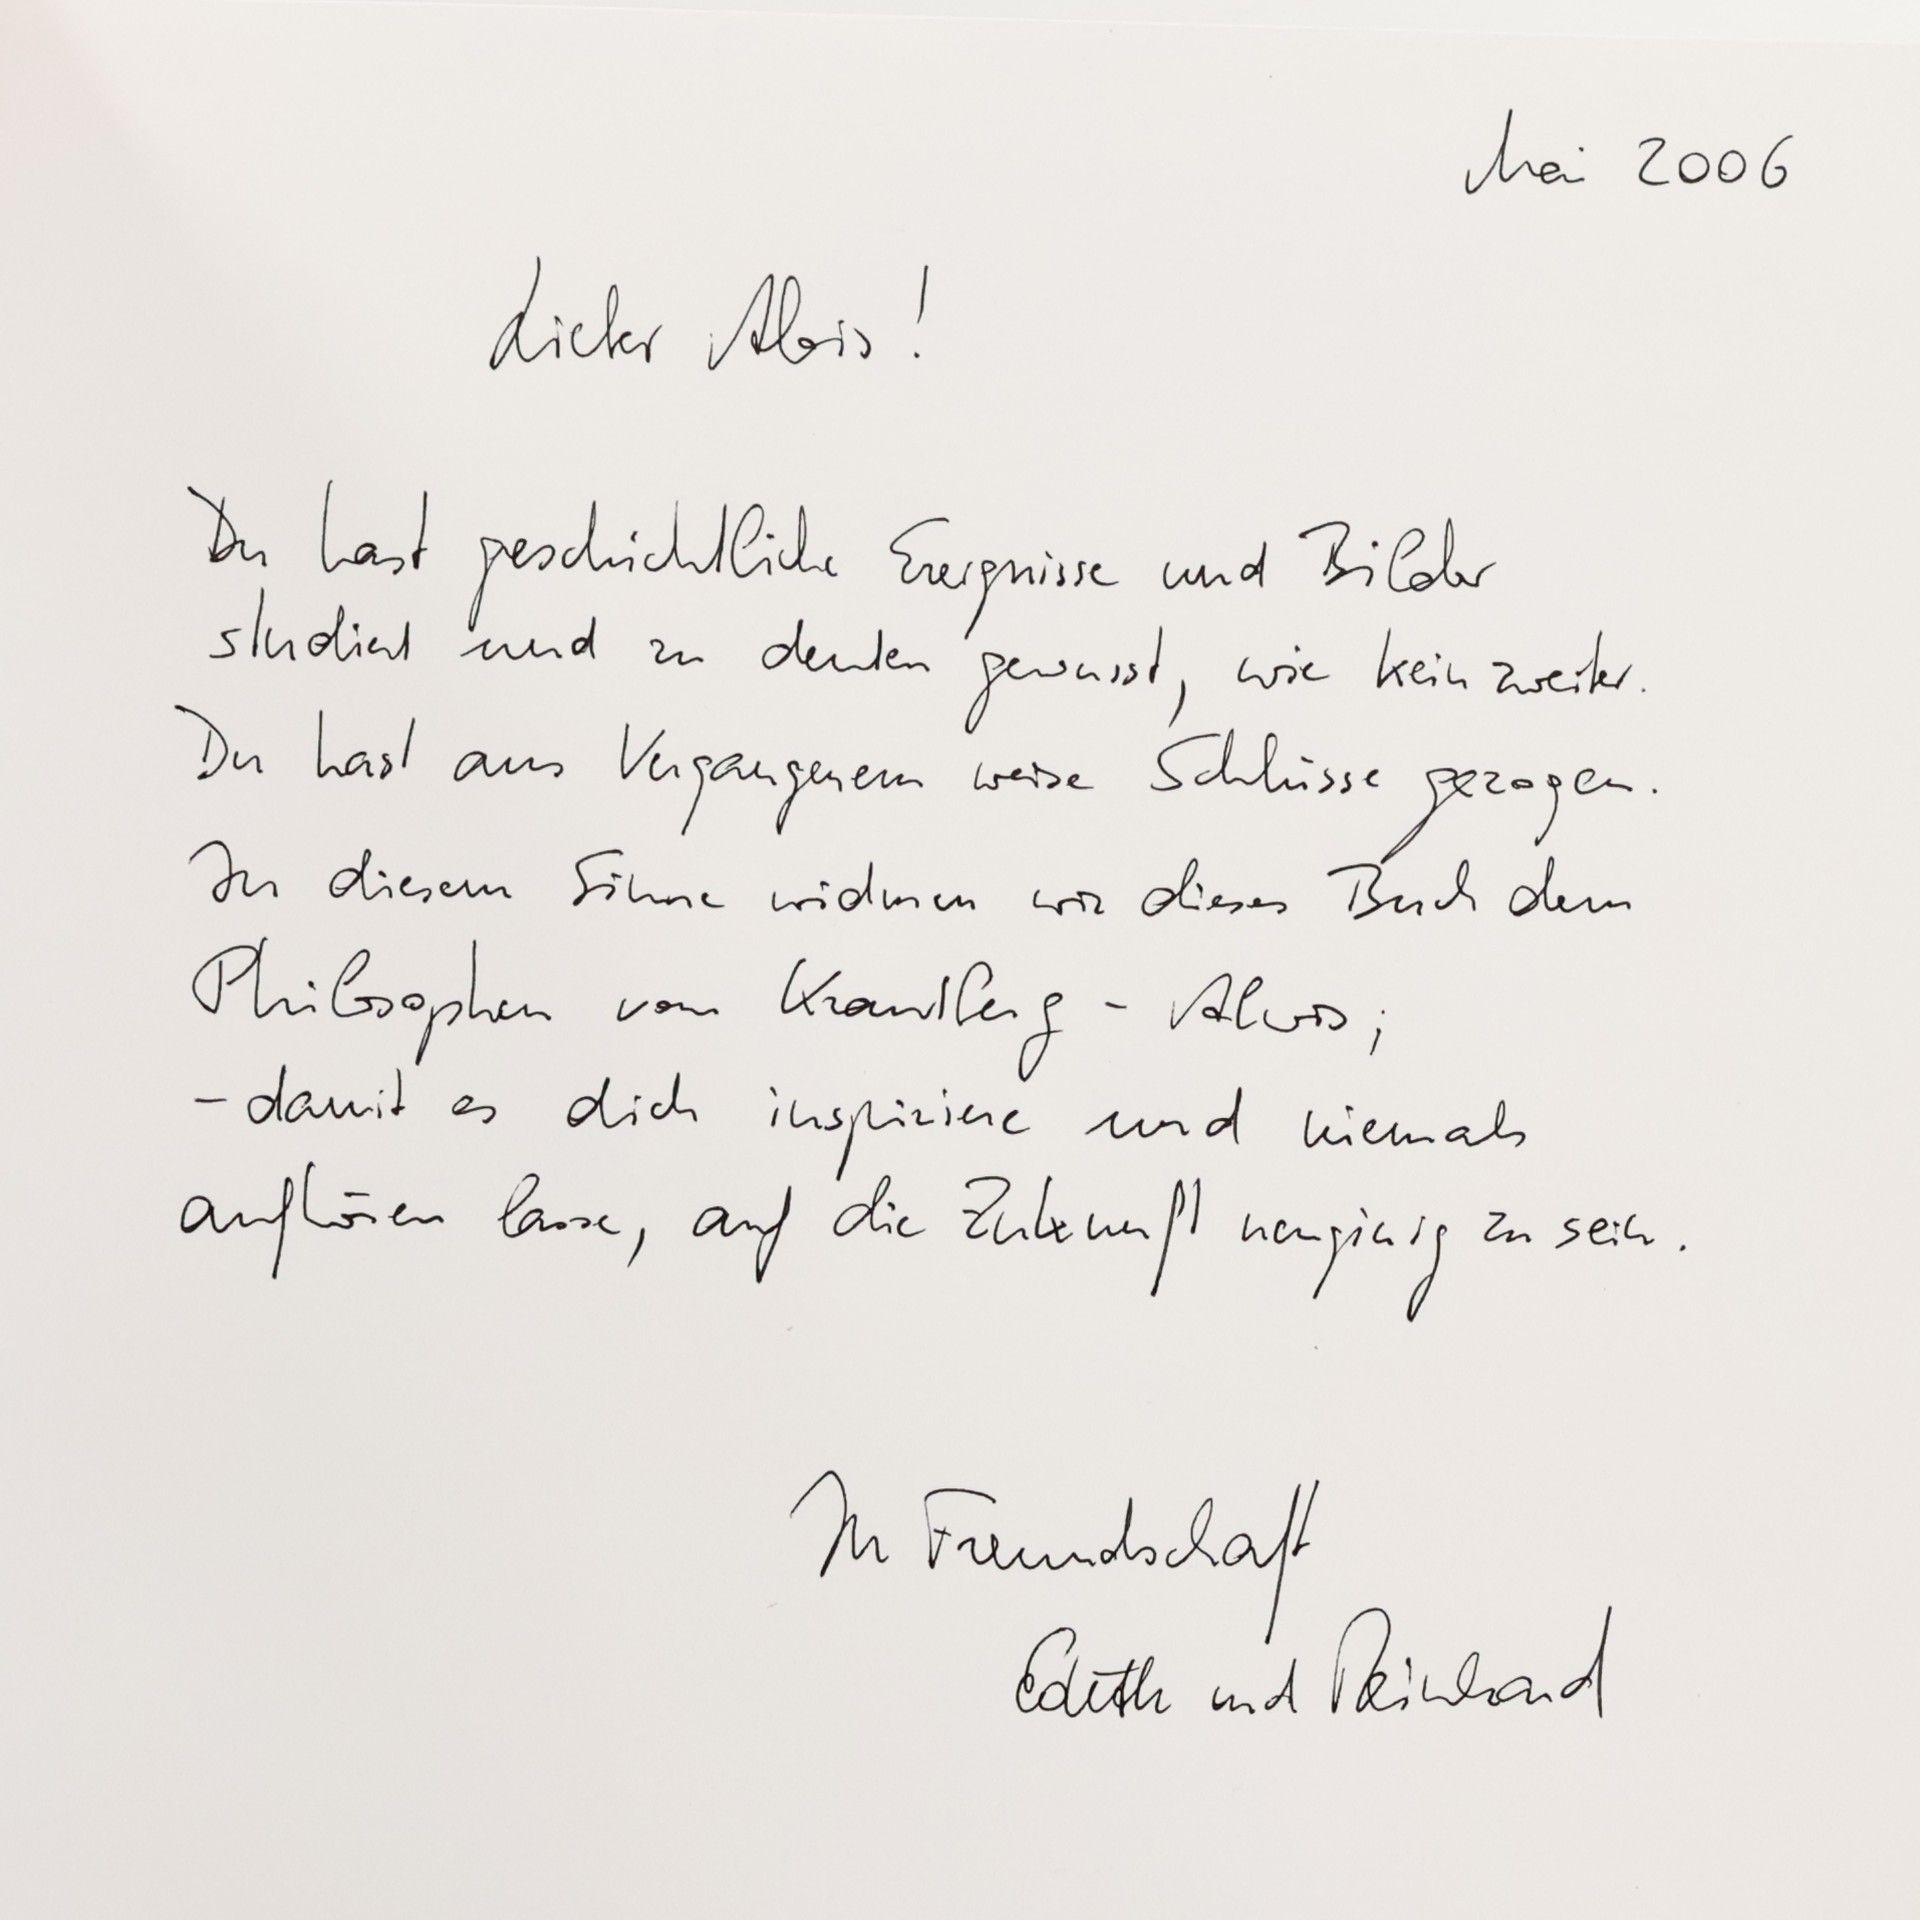 Mai 2006
Lieber Alois!
Du hast geschichtliche Ereignisse und Bilder
studiert und zu deuten gewusst, wie kein zweiter.
Du hast aus Vergangenem weise Schlüsse gezogen.
In diesem Sinne widmen wir dieses Buch dem
Philosophen vom - Alois;
- damit es dich inspiriere und niemals
aufhören lasse, auf die Zukunft neugierig zu sein.
In Freundschaft
Edith und Reinhard